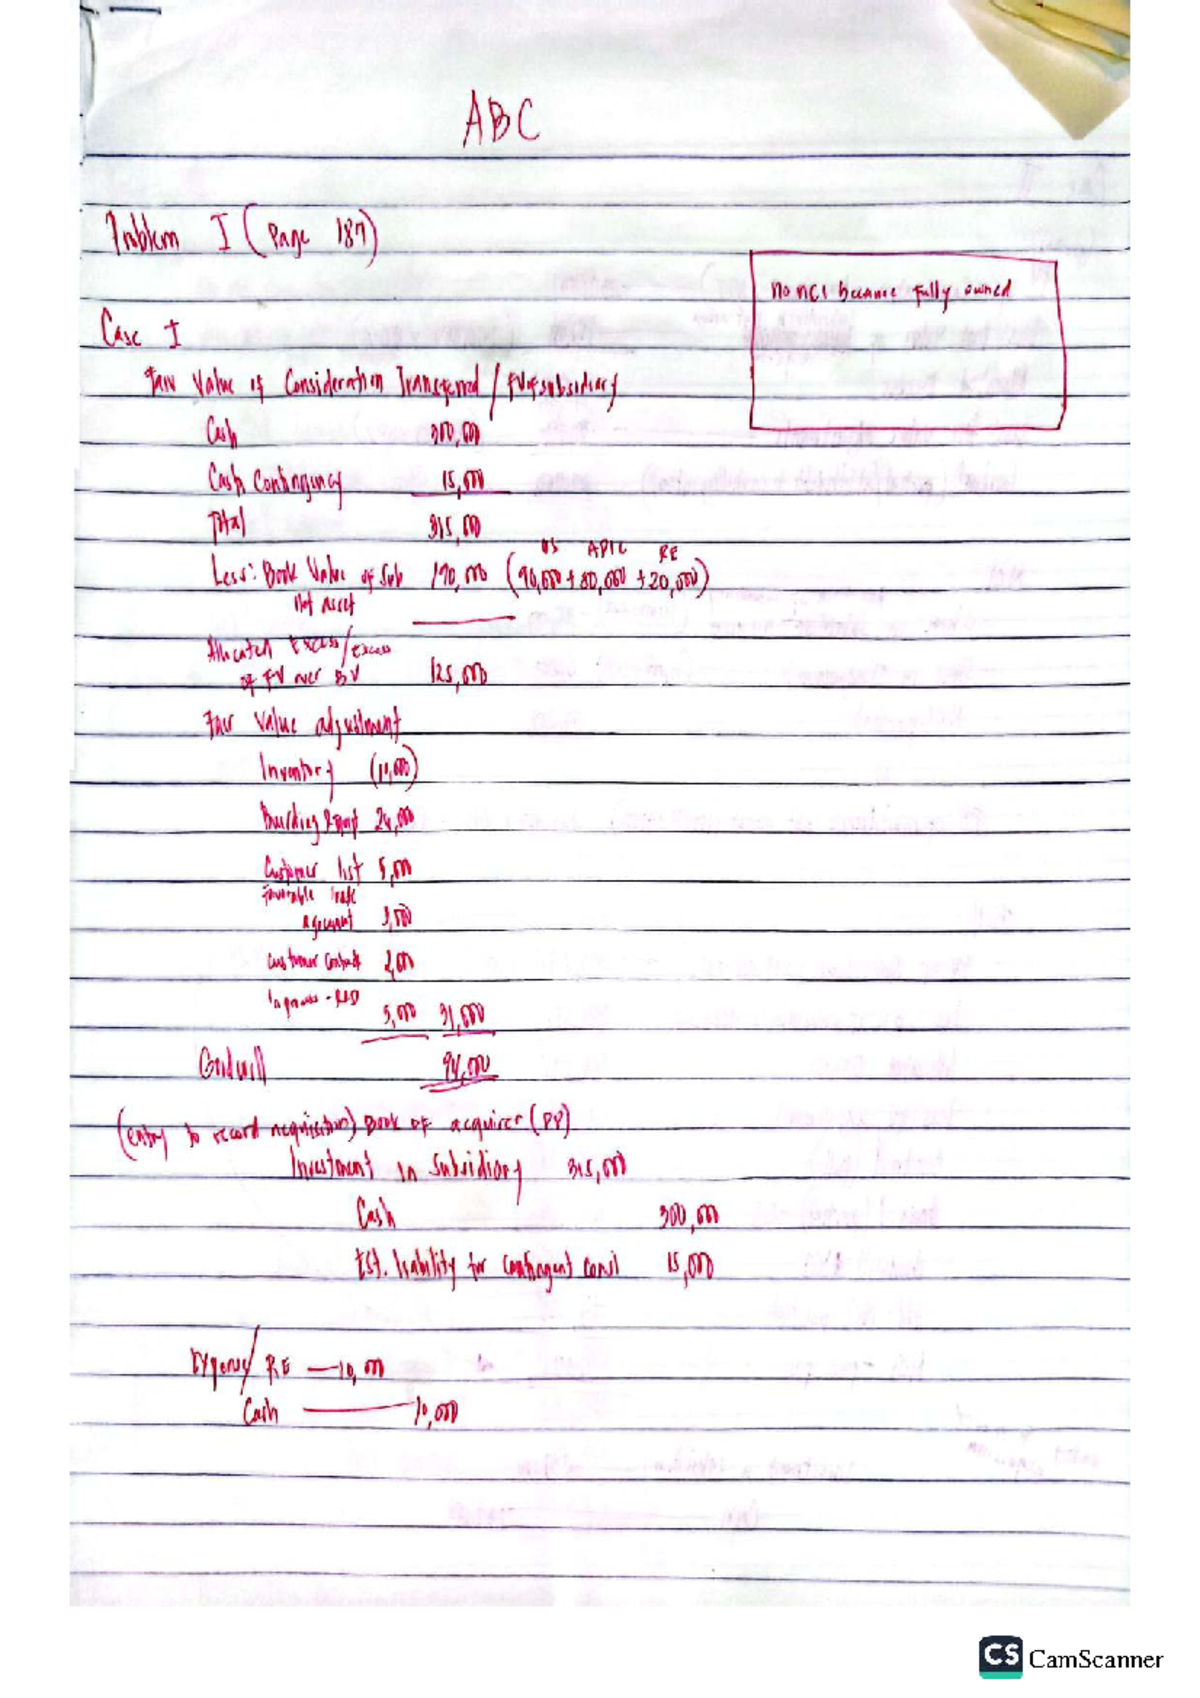 ABC
Problem I (Page 187)
no NCI because fully owned
Case I
Fair Value of Consideration Transferred / FV of subsidiary
Cash 300,000
Cash Contingency 15,000
Total 315,000
Less: Book Value of Sub 190,000 (90,000 + 80,000 + 20,000)
OS APIC RE
Net asset
Allocated Excess/Excess
of FV over BV 125,000
Fair Value adjustment
Inventory (10,000)
Building & Equip 24,000
Customer list 5,000
Favorable lease
agreement 3,000
Customer Contract 2,000
In process - R&D
5,000 31,000
Goodwill 94,000
(entry to record acquisition) Book of acquirer (PP)
Investment in Subsidiary 315,000
Cash 300,000
Est. liability for contingent consi 15,000
Expense/RE — 10,000
Cash — 10,000
CS CamScanner